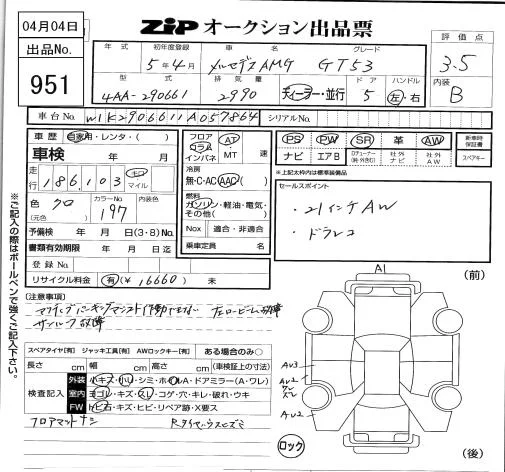 04月04日
ZIP オークション出品票
出品No.
951
年式 初年度登録 車名 グレード
5年4月 メルセデスAMG GT53
評価点
3.5
型式 排気量 ドア ハンドル
4AA-290661 2990 ディーラー・並行 5 左・右
内装
B
車台No. W1K2906611A057864 シリアルNo.
車歴 自家用・レンタ・( )
車検 年 月
走行 186,103 キロ マイル
色 クロ (元色)
カラーNo. 197
内装色
予備検 年 月 日(3・8)No.
書類有効期限 年 月 日迄
登録No.
リサイクル料金 有(¥16660) 未
フロア コラム インパネ AT・MT 速
冷房 無・C・AC・AAC
燃料 ガソリン・軽油・電気・その他( )
Nox 適合・非適合
乗車定員 名
PS PW SR 革 AW
ナビ エアB Dチューナー 社外ナビ 社外AW
新車時保証書
スペアキー
※上記太枠内は標準装備品
セールスポイント
・21インチAW
・ドラレコ
※ご記入の際はボールペンで強くご記入下さい。
(注意事項)
サンルーフ故障
スペアタイヤ(有) ジャッキ工具(有) AWロックキー(有) ある場合のみ○
長さ cm 幅 cm 高さ cm (車検証上の寸法)
検査記入
外装 小キズ・小U・シミ・ホイルA・ドアミラー(A・ワレ)
室内 ヨゴレ・キズ・スレ・コゲ・穴・キレ・破れ・ウキ
FW トビ石・キズ・ヒビ・リペア跡・X要ス
フロアマットナシ
ロック
A1
(前)
AU3
AU2
AU2
(後)